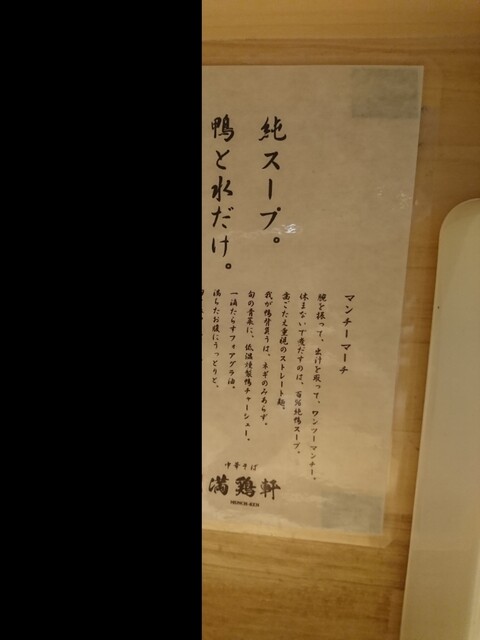 純スープ。
鴨と水だけ。
マンチーマーチ
腕を振って、出汁を取って、ワンツーマンチー。
休まない丁度だすのは、百%純鴨スープ。
歯ごたえ重視のストレート麺。
我が鴨背負うは、ネギのみあらず。
旬の青菜に、低温燻製鴨チャーシュー。
一滴たらすフォアグラ油。
満ちたお腹にうっとりと、
中華そば
満鶏軒